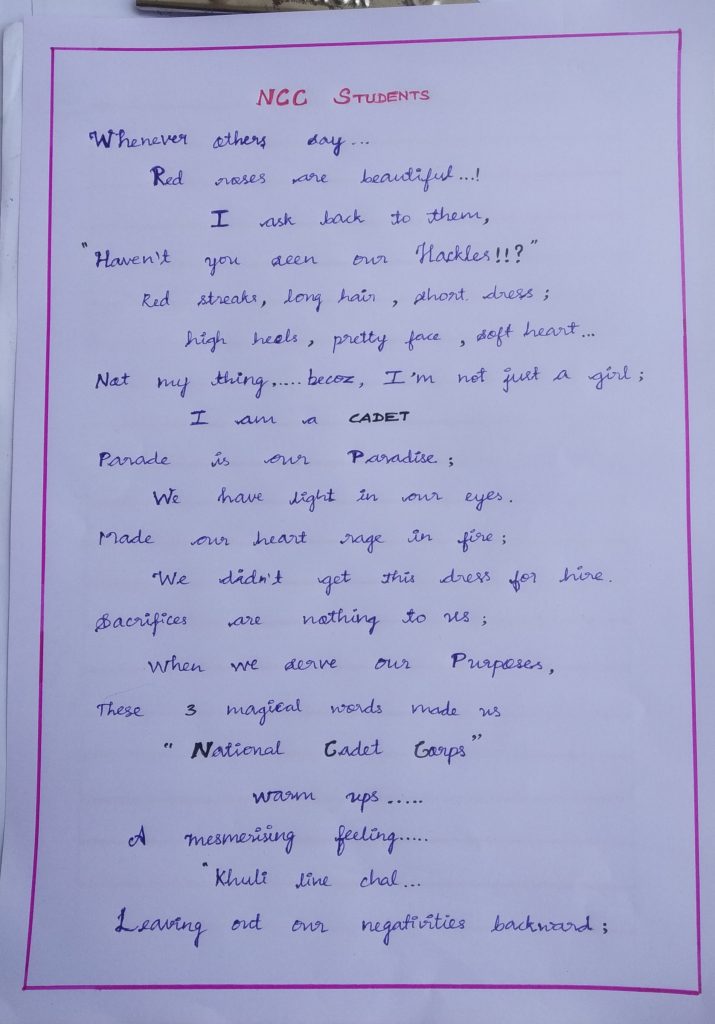 NCC STUDENTS
Whenever others say...
Red roses are beautiful...!
I ask back to them,
"Haven't you seen our Hackles!!?"
Red streaks, long hair, short dress;
high heels, pretty face, soft heart...
Not my thing,....becoz, I'm not just a girl;
I am a CADET
Parade is our Paradise;
We have light in our eyes.
Made our heart rage in fire;
We didn't get this dress for hire.
Sacrifices are nothing to us;
When we serve our Purposes,
These 3 magical words made us
"National Cadet Corps"
warm ups.....
A mesmerising feeling.....
"Khuli line chal...
Leaving out our negativities backward;